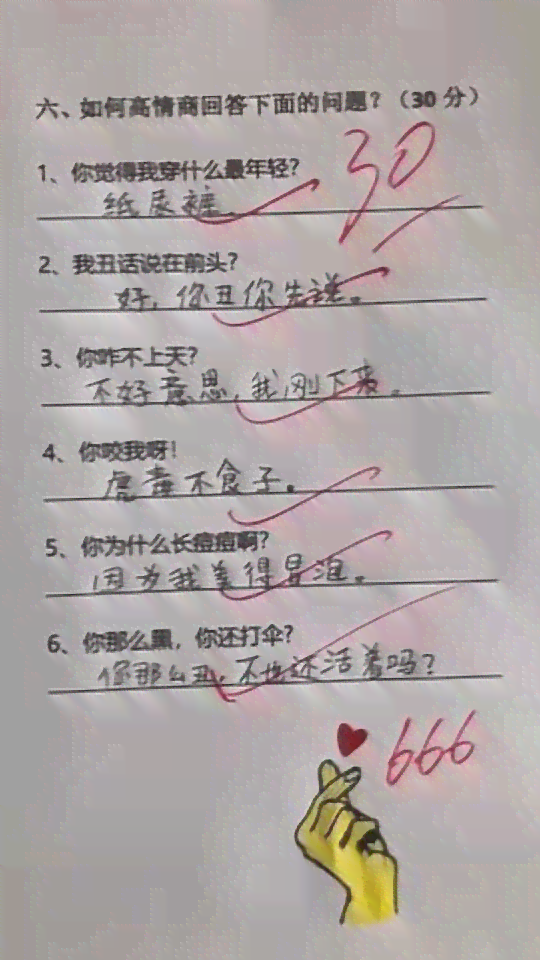 六、如何高情商回答下面的问题？（30 分）
30
1、你觉得我穿什么最年轻?
纸尿裤
2、我丑话说在前头?
好，你丑你先说。
3、你咋不上天?
不好意思，我刚下来。
4、你咬我呀!
虎毒不食子。
5、你为什么长痘痘啊?
因为我美得冒泡。
6、你那么黑，你还打伞?
你那么丑，不也还活着吗?
666